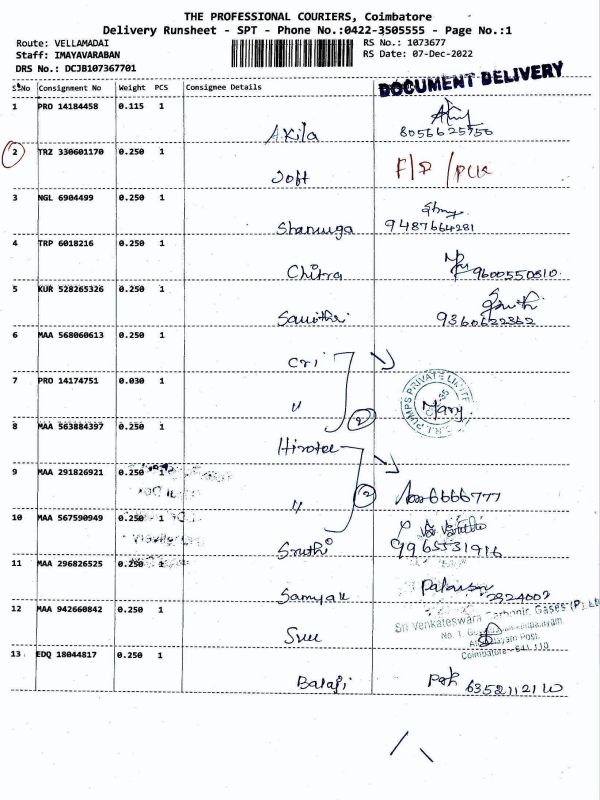 THE PROFESSIONAL COURIERS, Coimbatore
Delivery Runsheet - SPT - Phone No.:0422-3505555 - Page No.:1
Route: VELLAMADAI
RS No.: 1073677
Staff: IMAYAVARABAN
RS Date: 07-Dec-2022
DRS No.: DCJB107367701
DOCUMENT DELIVERY
S.No Consignment No Weight PCS Consignee Details
1 PRO 14184458 0.115 1
Akila 8056625756
2 TRZ 330601170 0.250 1
Joft F/D /PCK
3 NGL 6904499 0.250 1
Shanuga 9487664281
4 TRP 6018216 0.250 1
Chitra 9600550810
5 KUR 528265326 0.250 1
Savithri 9360622362
6 MAA 568060613 0.250 1
Cri
7 PRO 14174751 0.030 1
" 2 Mary
C.R.I. PUMPS PRIVATE LIMITED
8 MAA 563884397 0.250 1
Hirotec
9 MAA 291826921 0.250 1
" 2 6666777
10 MAA 567590949 0.250 1
Sruthi 9965531916
11 MAA 296826525 0.250 1
Samyak 2924002
12 MAA 942660842 0.250 1
Sree
Sri Venkateswara Carbonic Gases (P) Ltd
No. 1,
Post.
Coimbatore - 641 110
13 EDQ 18044817 0.250 1
Balaji